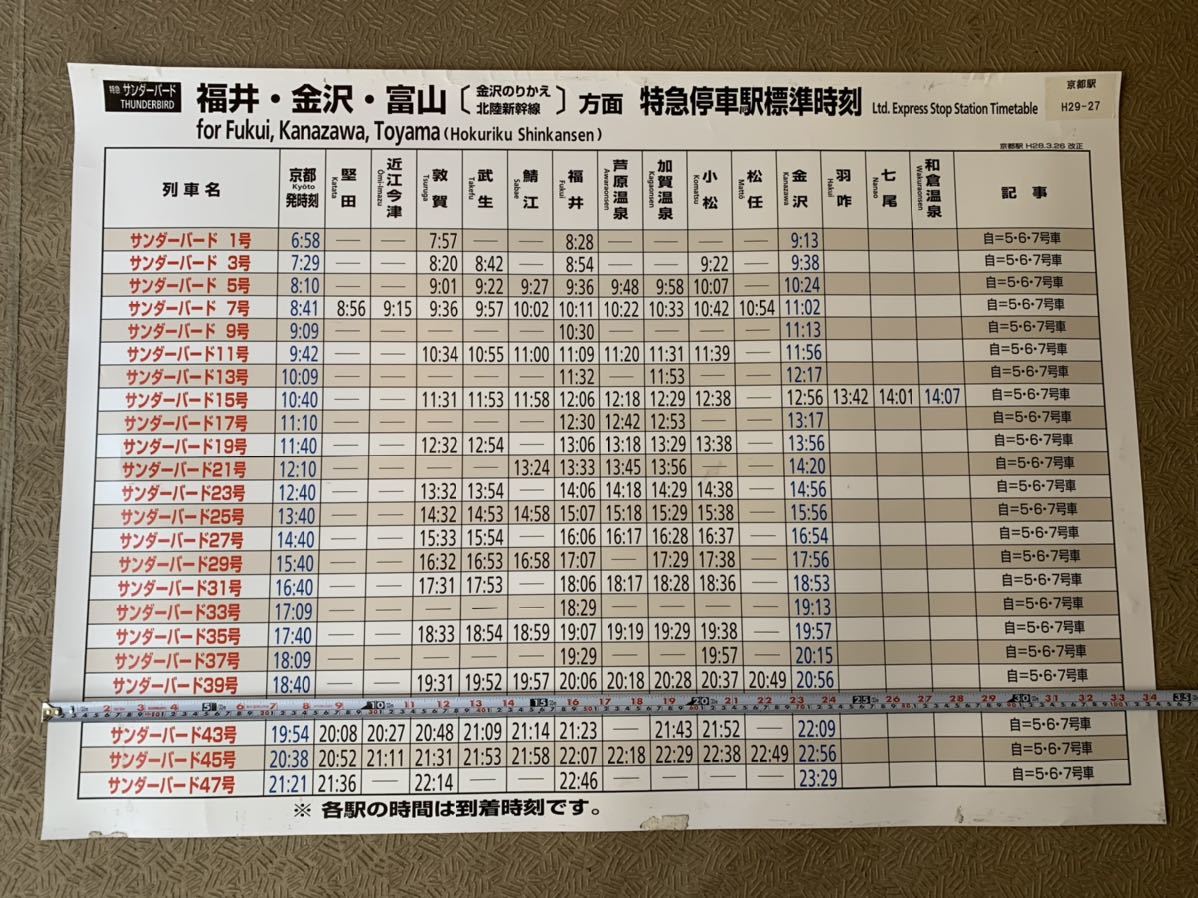 特急 サンダーバード
THUNDERBIRD
福井・金沢・富山〔金沢のりかえ 北陸新幹線〕方面 特急停車駅標準時刻 Ltd. Express Stop Station Timetable
for Fukui, Kanazawa, Toyama (Hokuriku Shinkansen)
京都駅
H29-27
京都駅 H28.3.26 改正
列車名 京都 Kyōto 発時刻 堅田 Katata 近江今津 Ōmi-Imazu 敦賀 Tsuruga 武生 Takefu 鯖江 Sabae 福井 Fukui 芦原温泉 Awaraonsen 加賀温泉 Kagaonsen 小松 Komatsu 松任 Mattō 金沢 Kanazawa 羽咋 Hakui 七尾 Nanao 和倉温泉 Wakuraonsen 記事
サンダーバード 1号 6:58 — — 7:57 — — 8:28 — — — — 9:13 自=5・6・7号車
サンダーバード 3号 7:29 — — 8:20 8:42 — 8:54 — — 9:22 — 9:38 自=5・6・7号車
サンダーバード 5号 8:10 — — 9:01 9:22 9:27 9:36 9:48 9:58 10:07 — 10:24 自=5・6・7号車
サンダーバード 7号 8:41 8:56 9:15 9:36 9:57 10:02 10:11 10:22 10:33 10:42 10:54 11:02 自=5・6・7号車
サンダーバード 9号 9:09 — — — — — 10:30 — — — — 11:13 自=5・6・7号車
サンダーバード11号 9:42 — — 10:34 10:55 11:00 11:09 11:20 11:31 11:39 — 11:56 自=5・6・7号車
サンダーバード13号 10:09 — — — — — 11:32 — 11:53 — — 12:17 自=5・6・7号車
サンダーバード15号 10:40 — — 11:31 11:53 11:58 12:06 12:18 12:29 12:38 — 12:56 13:42 14:01 14:07 自=5・6・7号車
サンダーバード17号 11:10 — — — — — 12:30 12:42 12:53 — — 13:17 自=5・6・7号車
サンダーバード19号 11:40 — — 12:32 12:54 — 13:06 13:18 13:29 13:38 — 13:56 自=5・6・7号車
サンダーバード21号 12:10 — — — — 13:24 13:33 13:45 13:56 — — 14:20 自=5・6・7号車
サンダーバード23号 12:40 — — 13:32 13:54 — 14:06 14:18 14:29 14:38 — 14:56 自=5・6・7号車
サンダーバード25号 13:40 — — 14:32 14:53 14:58 15:07 15:18 15:29 15:38 — 15:56 自=5・6・7号車
サンダーバード27号 14:40 — — 15:33 15:54 — 16:06 16:17 16:28 16:37 — 16:54 自=5・6・7号車
サンダーバード29号 15:40 — — 16:32 16:53 16:58 17:07 — 17:29 17:38 — 17:56 自=5・6・7号車
サンダーバード31号 16:40 — — 17:31 17:53 — 18:06 18:17 18:28 18:36 — 18:53 自=5・6・7号車
サンダーバード33号 17:09 — — — — — 18:29 — — — — 19:13 自=5・6・7号車
サンダーバード35号 17:40 — — 18:33 18:54 18:59 19:07 19:19 19:29 19:38 — 19:57 自=5・6・7号車
サンダーバード37号 18:09 — — — — — 19:29 — — 19:57 — 20:15 自=5・6・7号車
サンダーバード39号 18:40 — — 19:31 19:52 19:57 20:06 20:18 20:28 20:37 20:49 20:56 自=5・6・7号車
1 2 3 4 5 6 7 8 9 10 11 12 13 14 15 16 17 18 19 20 21 22 23 24 25 26 27 28 29 30 31 32 33 34 35
サンダーバード43号 19:54 20:08 20:27 20:48 21:09 21:14 21:23 — 21:43 21:52 — 22:09 自=5・6・7号車
サンダーバード45号 20:38 20:52 21:11 21:31 21:53 21:58 22:07 22:18 22:29 22:38 22:49 22:56 自=5・6・7号車
サンダーバード47号 21:21 21:36 — 22:14 — — 22:46 — — — — 23:29 自=5・6・7号車
※ 各駅の時間は到着時刻です。